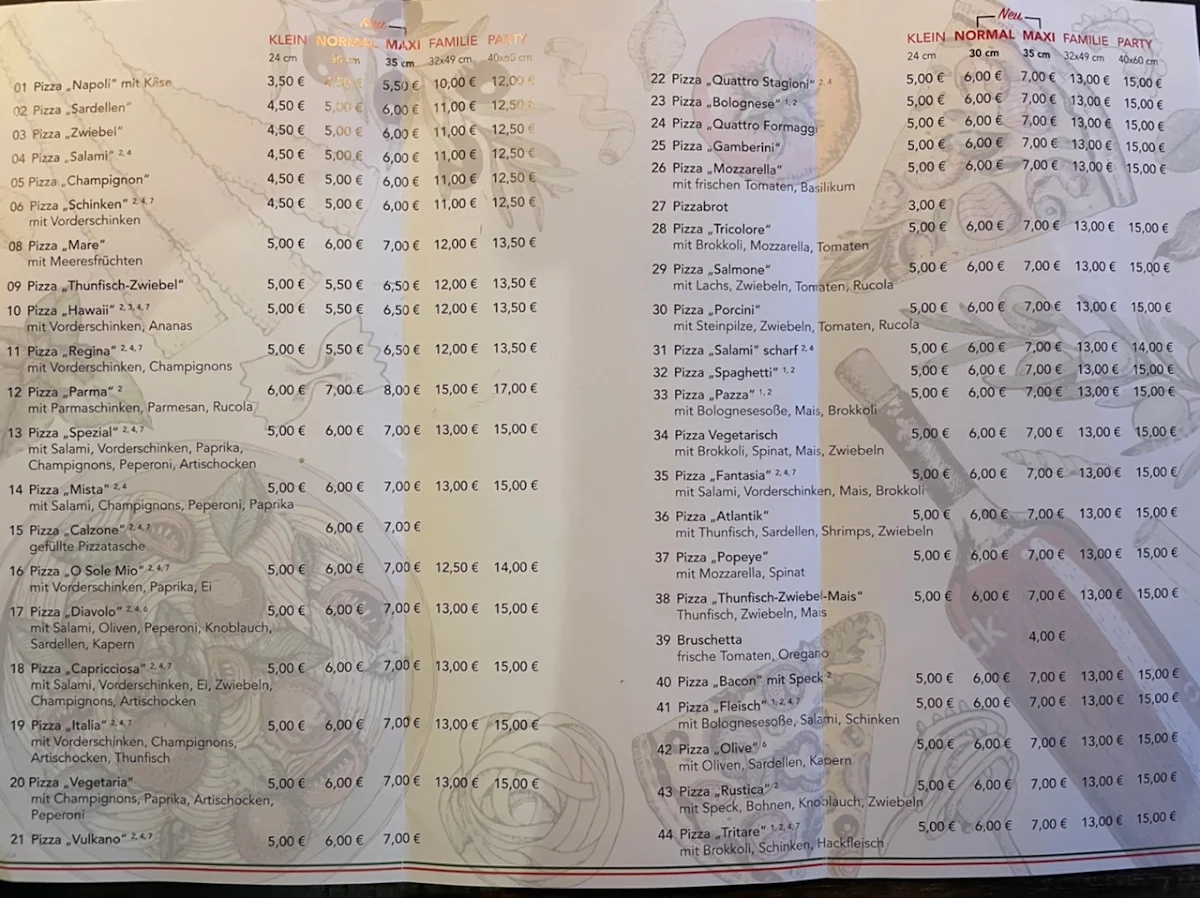 Neu
KLEIN NORMAL MAXI FAMILIE PARTY
24 cm 30 cm 35 cm 32x49 cm 40x60 cm
01 Pizza „Napoli“ mit Käse 3,50 € 4,50 € 5,50 € 10,00 € 12,00 €
02 Pizza „Sardellen“ 4,50 € 5,00 € 6,00 € 11,00 € 12,50 €
03 Pizza „Zwiebel“ 4,50 € 5,00 € 6,00 € 11,00 € 12,50 €
04 Pizza „Salami“ 2, 4 4,50 € 5,00 € 6,00 € 11,00 € 12,50 €
05 Pizza „Champignon“ 4,50 € 5,00 € 6,00 € 11,00 € 12,50 €
06 Pizza „Schinken“ 2, 4, 7 4,50 € 5,00 € 6,00 € 11,00 € 12,50 €
mit Vorderschinken
08 Pizza „Mare“ 5,00 € 6,00 € 7,00 € 12,00 € 13,50 €
mit Meeresfrüchten
09 Pizza „Thunfisch-Zwiebel“ 5,00 € 5,50 € 6,50 € 12,00 € 13,50 €
10 Pizza „Hawaii“ 2, 3, 4, 7 5,00 € 5,50 € 6,50 € 12,00 € 13,50 €
mit Vorderschinken, Ananas
11 Pizza „Regina“ 2, 4, 7 5,00 € 5,50 € 6,50 € 12,00 € 13,50 €
mit Vorderschinken, Champignons
12 Pizza „Parma“ 2 6,00 € 7,00 € 8,00 € 15,00 € 17,00 €
mit Parmaschinken, Parmesan, Rucola
13 Pizza „Spezial“ 2, 4, 7 5,00 € 6,00 € 7,00 € 13,00 € 15,00 €
mit Salami, Vorderschinken, Paprika,
Champignons, Peperoni, Artischocken
14 Pizza „Mista“ 2, 4 5,00 € 6,00 € 7,00 € 13,00 € 15,00 €
mit Salami, Champignons, Peperoni, Paprika
15 Pizza „Calzone“ 2, 4, 7 6,00 € 7,00 €
gefüllte Pizzatasche
16 Pizza „O Sole Mio“ 2, 4, 7 5,00 € 6,00 € 7,00 € 12,50 € 14,00 €
mit Vorderschinken, Paprika, Ei
17 Pizza „Diavolo“ 2, 4, 6 5,00 € 6,00 € 7,00 € 13,00 € 15,00 €
mit Salami, Oliven, Peperoni, Knoblauch,
Sardellen, Kapern
18 Pizza „Capricciosa“ 2, 4, 7 5,00 € 6,00 € 7,00 € 13,00 € 15,00 €
mit Salami, Vorderschinken, Ei, Zwiebeln,
Champignons, Artischocken
19 Pizza „Italia“ 2, 4, 7 5,00 € 6,00 € 7,00 € 13,00 € 15,00 €
mit Vorderschinken, Champignons,
Artischocken, Thunfisch
20 Pizza „Vegetaria“ 5,00 € 6,00 € 7,00 € 13,00 € 15,00 €
mit Champignons, Paprika, Artischocken,
Peperoni
21 Pizza „Vulkano“ 2, 4, 7 5,00 € 6,00 € 7,00 €
Neu
KLEIN NORMAL MAXI FAMILIE PARTY
24 cm 30 cm 35 cm 32x49 cm 40x60 cm
22 Pizza „Quattro Stagioni“ 2, 4 5,00 € 6,00 € 7,00 € 13,00 € 15,00 €
23 Pizza „Bolognese“ 1, 2 5,00 € 6,00 € 7,00 € 13,00 € 15,00 €
24 Pizza „Quattro Formaggi 5,00 € 6,00 € 7,00 € 13,00 € 15,00 €
25 Pizza „Gamberini“ 5,00 € 6,00 € 7,00 € 13,00 € 15,00 €
26 Pizza „Mozzarella“ 5,00 € 6,00 € 7,00 € 13,00 € 15,00 €
mit frischen Tomaten, Basilikum
27 Pizzabrot 3,00 €
28 Pizza „Tricolore“ 5,00 € 6,00 € 7,00 € 13,00 € 15,00 €
mit Brokkoli, Mozzarella, Tomaten
29 Pizza „Salmone“ 5,00 € 6,00 € 7,00 € 13,00 € 15,00 €
mit Lachs, Zwiebeln, Tomaten, Rucola
30 Pizza „Porcini“ 5,00 € 6,00 € 7,00 € 13,00 € 15,00 €
mit Steinpilze, Zwiebeln, Tomaten, Rucola
31 Pizza „Salami“ scharf 2, 4 5,00 € 6,00 € 7,00 € 13,00 € 14,00 €
32 Pizza „Spaghetti“ 1, 2 5,00 € 6,00 € 7,00 € 13,00 € 15,00 €
33 Pizza „Pazza“ 1, 2 5,00 € 6,00 € 7,00 € 13,00 € 15,00 €
mit Bolognesesoße, Mais, Brokkoli
34 Pizza Vegetarisch 5,00 € 6,00 € 7,00 € 13,00 € 15,00 €
mit Brokkoli, Spinat, Mais, Zwiebeln
35 Pizza „Fantasia“ 2, 4, 7 5,00 € 6,00 € 7,00 € 13,00 € 15,00 €
mit Salami, Vorderschinken, Mais, Brokkoli
36 Pizza „Atlantik“ 5,00 € 6,00 € 7,00 € 13,00 € 15,00 €
mit Thunfisch, Sardellen, Shrimps, Zwiebeln
37 Pizza „Popeye“ 5,00 € 6,00 € 7,00 € 13,00 € 15,00 €
mit Mozzarella, Spinat
38 Pizza „Thunfisch-Zwiebel-Mais“ 5,00 € 6,00 € 7,00 € 13,00 € 15,00 €
Thunfisch, Zwiebeln, Mais
39 Bruschetta 4,00 €
frische Tomaten, Oregano
40 Pizza „Bacon“ mit Speck 2 5,00 € 6,00 € 7,00 € 13,00 € 15,00 €
41 Pizza „Fleisch“ 1, 2, 4, 7 5,00 € 6,00 € 7,00 € 13,00 € 15,00 €
mit Bolognesesoße, Salami, Schinken
42 Pizza „Olive“ 6 5,00 € 6,00 € 7,00 € 13,00 € 15,00 €
mit Oliven, Sardellen, Kapern
43 Pizza „Rustica“ 2 5,00 € 6,00 € 7,00 € 13,00 € 15,00 €
mit Speck, Bohnen, Knoblauch, Zwiebeln
44 Pizza „Tritare“ 1, 2, 4, 7 5,00 € 6,00 € 7,00 € 13,00 € 15,00 €
mit Brokkoli, Schinken, Hackfleisch